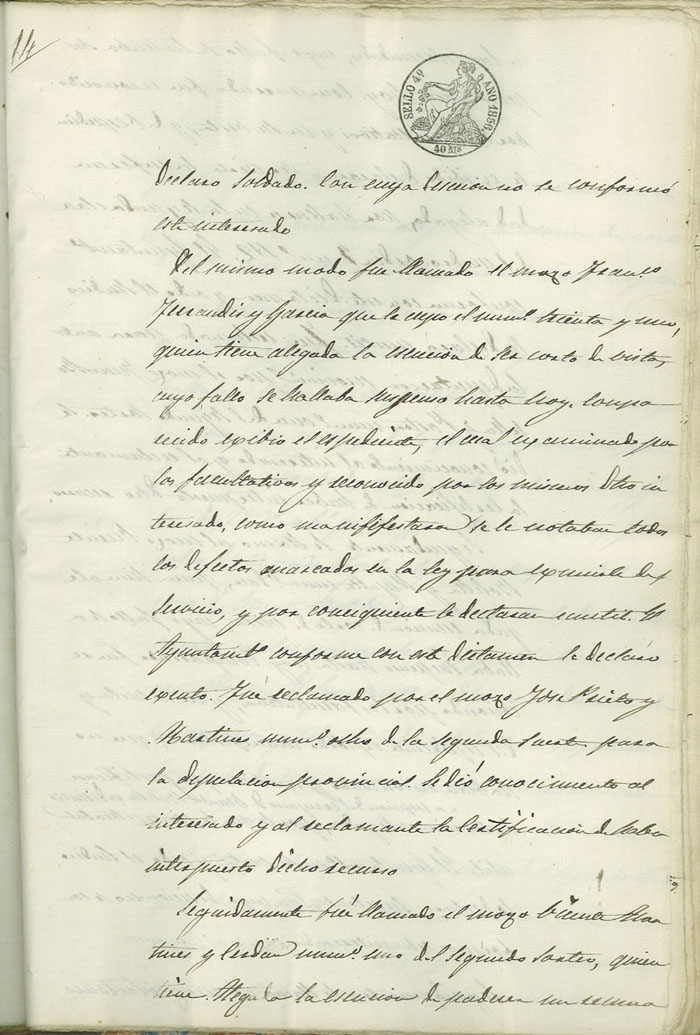 14
SELLO 4º AÑO 1858.
40 Ms
declaro Soldado. Con cuya decision no se conformó
este interesado
Del mismo modo fue llamado el mozo Franco
Ferrandis y Garcia que le cupo el numº treinta y uno,
quien tiene alegada la esencion de ser corto de vista,
cuyo fallo se hallaba suspenso hasta hoy. Compa
recido exibio el espediente, el cual examinado por
los facultativos y reconocido por los mismos dho in
teresado, como manififestaran se le notaban todos
los defectos marcados en la ley para eximirle del
Servicio, y por conciquiente le declaran inutil. El
Ayuntamto conforme con este dictamen le declaro
exento. Fué reclamado por el mozo Jose Prieto y
Martines numº ocho de la segunda Suerte para
la diputacion provincial. Se dió conocimiento al
interesado y al reclamante la Certificacion de haber
interpuesto dicho recurso
Seguidamente fué llamado el mozo Mar
tines y Cerdan numº uno del Segundo Sorteo, quien
tiene Alegada la esencion de padecer un